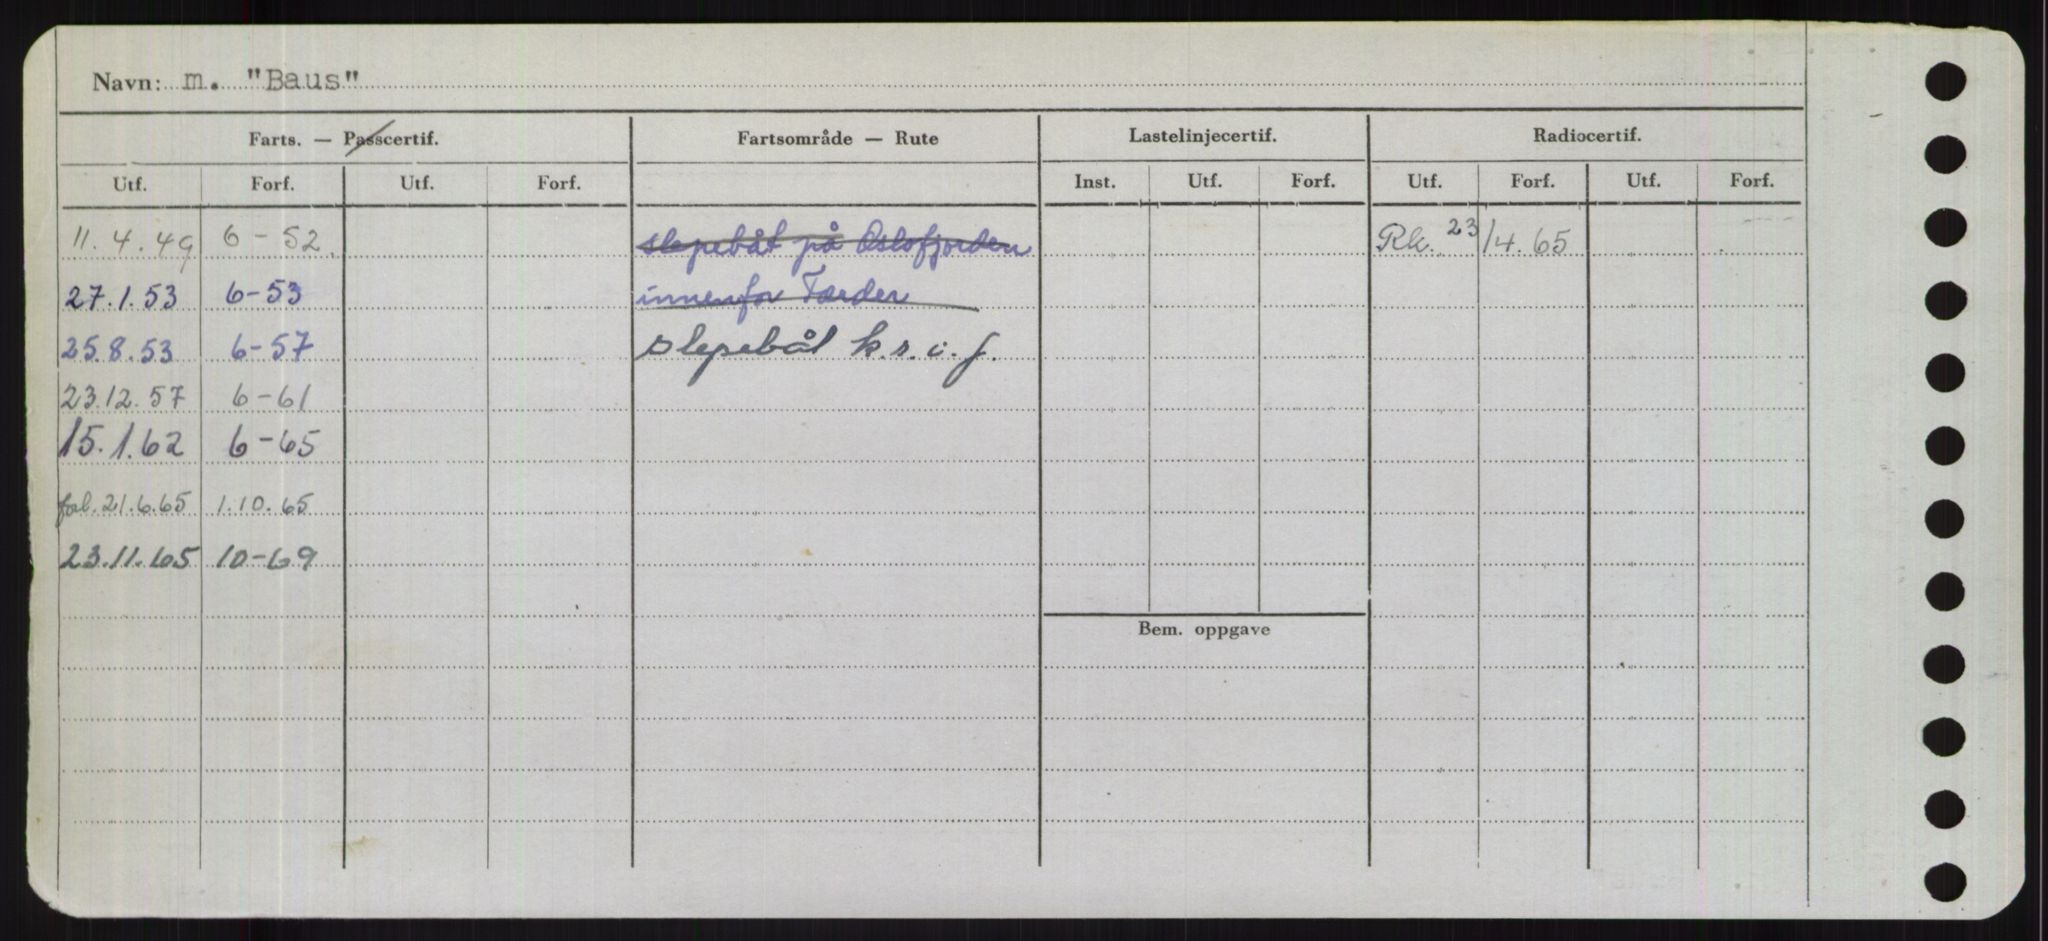 Navn: m. "Baus"
Farts. — Passcertif. Fartsområde — Rute Lastelinjecertif. Radiocertif.
Utf. Forf. Utf. Forf. Inst. Utf. Forf. Utf. Forf. Utf. Forf.
11.4.49 6-52 slepebåt på Oslofjorden Rk. 23/4.65
27.1.53 6-53 innenfor Færder
25.8.53 6-57 slepebåt k.s.i.f.
23.12.57 6-61
15.1.62 6-65
fol. 21.6.65 1.10.65
23.11.65 10-69
Bem. oppgave